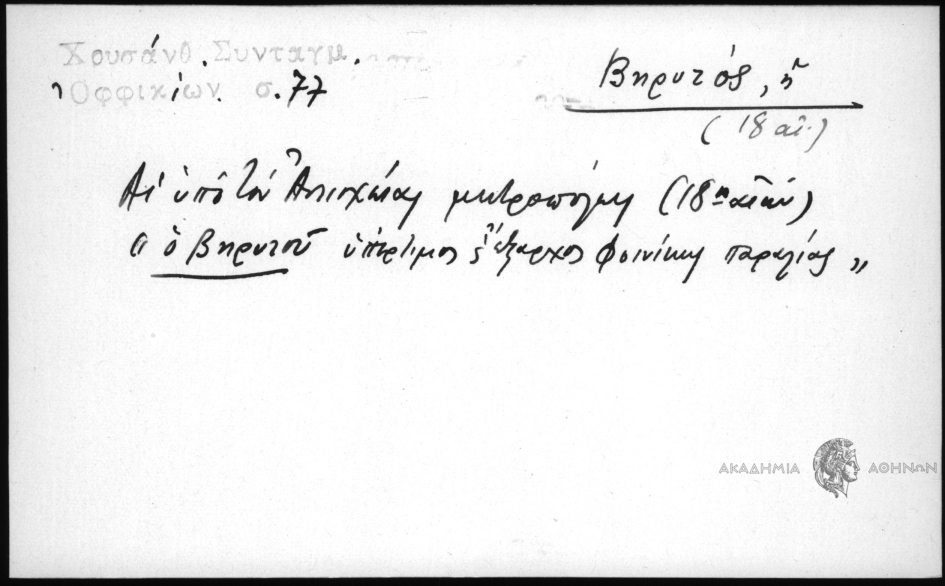 Χρυσάνθ. Συνταγμ.
Ὀφφικίων σ. 77
Βηρυτός, ἡ
(18 αἰ.)
Αἱ ὑπὸ τὸν Ἀντιοχείας μητροπόλεις (18ος αἰών)
" ὁ Βηρυτοῦ ὑπέρτιμος ἔξαρχος Φοινίκης παραλίας "
ΑΚΑΔΗΜΙΑ ΑΘΗΝΩΝ